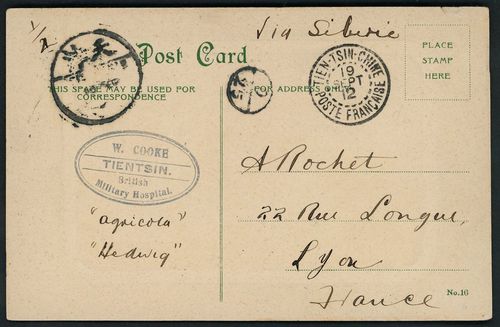 1/2
Via Siberie
Post Card
THIS SPACE MAY BE USED FOR
CORRESPONDENCE
FOR ADDRESS ONLY
PLACE
STAMP
HERE
TIEN-TSIN-CHINE
19
SEPT
12
POSTE FRANÇAISE
W. COOKE
TIENTSIN.
British
Military Hospital.
"agricola"
"Hedwig"
A Rochet
22 Rue Longue
Lyon
France
No. 16